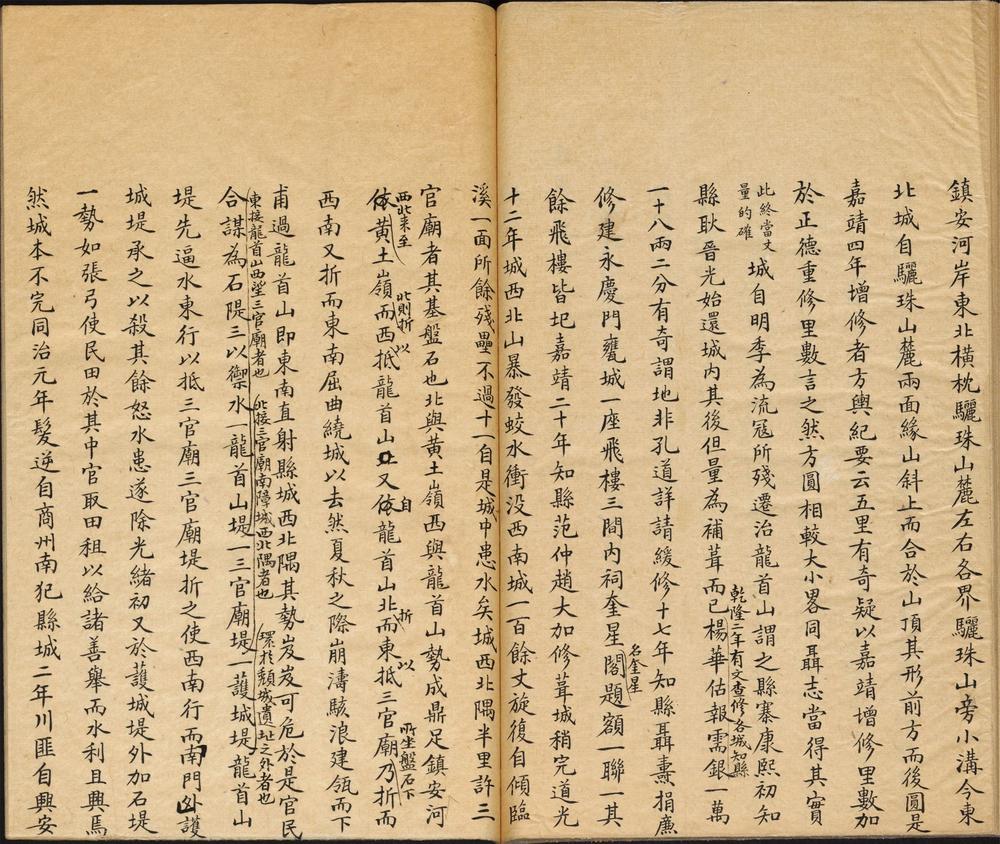 鎮安河岸東北橫枕驪珠山麓左右各界驪珠山旁小溝今東
北城自驪珠山麓兩面緣山斜上而合於山頂其形前方而後圓是
嘉靖四年增修者方輿紀要云五里有奇疑以嘉靖增修里數加
於正德重修里數言之然方圓相較大小畧同聶志當得其實
此終當丈
量的確
城自明季為流寇所殘遷治龍首山謂之縣寨康熙初知
縣耿晉光始還城內其後但量為補葺而已
乾隆二年有文查修各城知縣
楊華估報需銀一萬
一十八兩二分有奇謂地非孔道詳請緩修十七年知縣聶燾捐廉
修建永慶門甕城一座飛樓三間內祠奎星閣題額一聯一其
名奎星
餘飛樓皆圮嘉靖二十年知縣范仲趙大加修葺城稍完道光
十二年城西北山暴發蛟水衝没西南城一百餘丈旋復自傾臨
溪一面所餘殘壘不過十一自是城中患水矣城西北隅半里許三
官廟者其基盤石也北與黃土嶺西與龍首山勢成鼎足鎮安河
西北来至
依黃土嶺而西抵龍首山又依龍首山北而東抵三官廟乃折而
此則折以
自
折以
所坐盤石下
西南又折而東南屈曲繞城以去然夏秋之際崩濤駭浪建瓴而下
甫過龍首山即東南直射縣城西北隅其勢岌岌可危於是官民
東接龍首山西望三官廟者也
北接三官廟南障城西北隅者也
環於頹城遺址之外者也
合謀為石隄三以禦水一龍首山堤一三官廟堤一護城堤龍首山
堤先逼水東行以抵三官廟三官廟堤折之使西南行而南門外護
城堤承之以殺其餘怒水患遂除光緒初又於護城堤外加石堤
一勢如張弓使民田於其中官取田租以給諸善舉而水利且興焉
然城本不完同治元年髮逆自商州南犯縣城二年川匪自興安